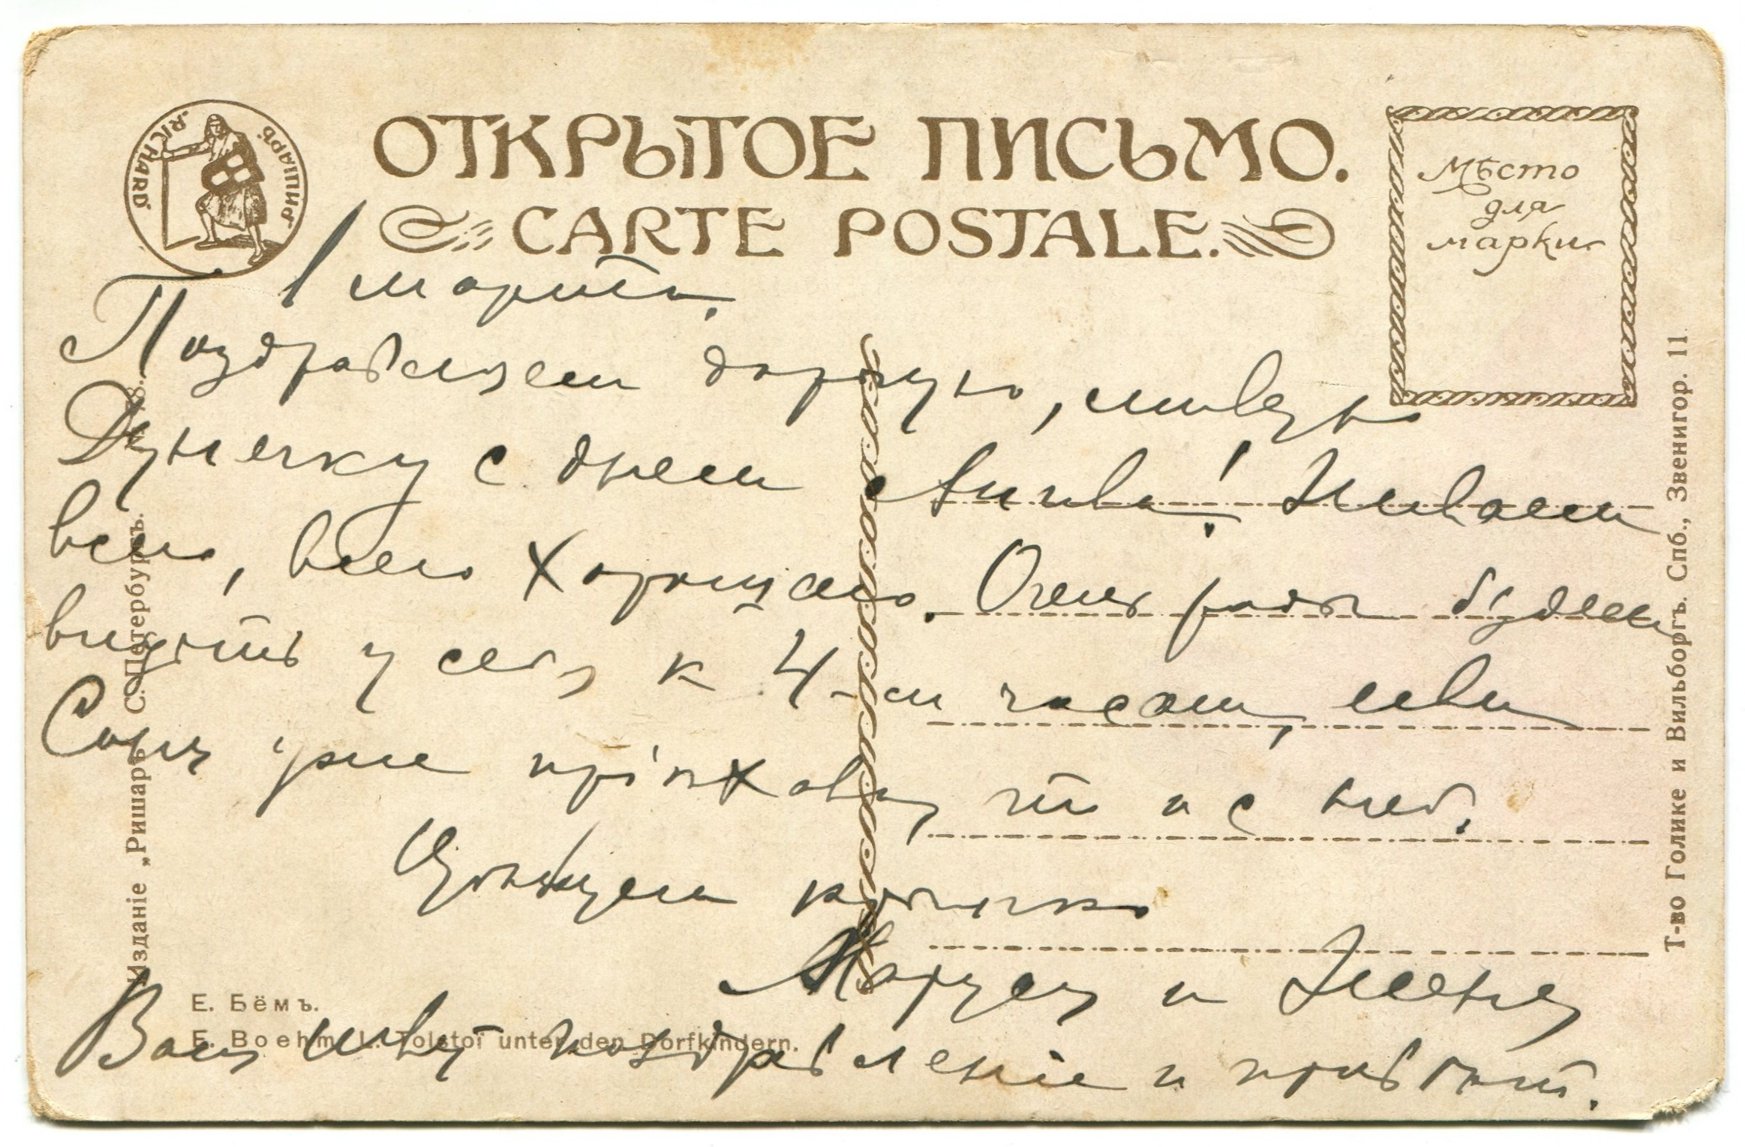 "RICHARD" "РИШАРЪ"
ОТКРЫТОЕ ПИСЬМО.
CARTE POSTALE.
Мѣсто
для
марки
1 марта.
Поздравляем дорогую, милую
Дунечку с днем Ангела! Желаем
всего, всего хорошаго. Очень рады будем
видѣть у себя к 4-м часам, если
Соня уже пріѣхала, то и с ней.
Цѣлуем крѣпко
Маруся и Женя
Всѣм поздравленіе и привѣт.
Е. Бёмъ.
E. Boehm. L. Tolstoï unter den Dorfkindern.
Изданіе „Ришаръ" С. Петербургъ.
Т-во Голике и Вильборгъ. Спб., Звенигор. 11.